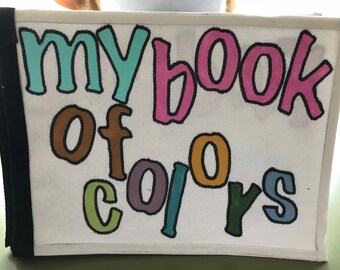 my book
of
colors